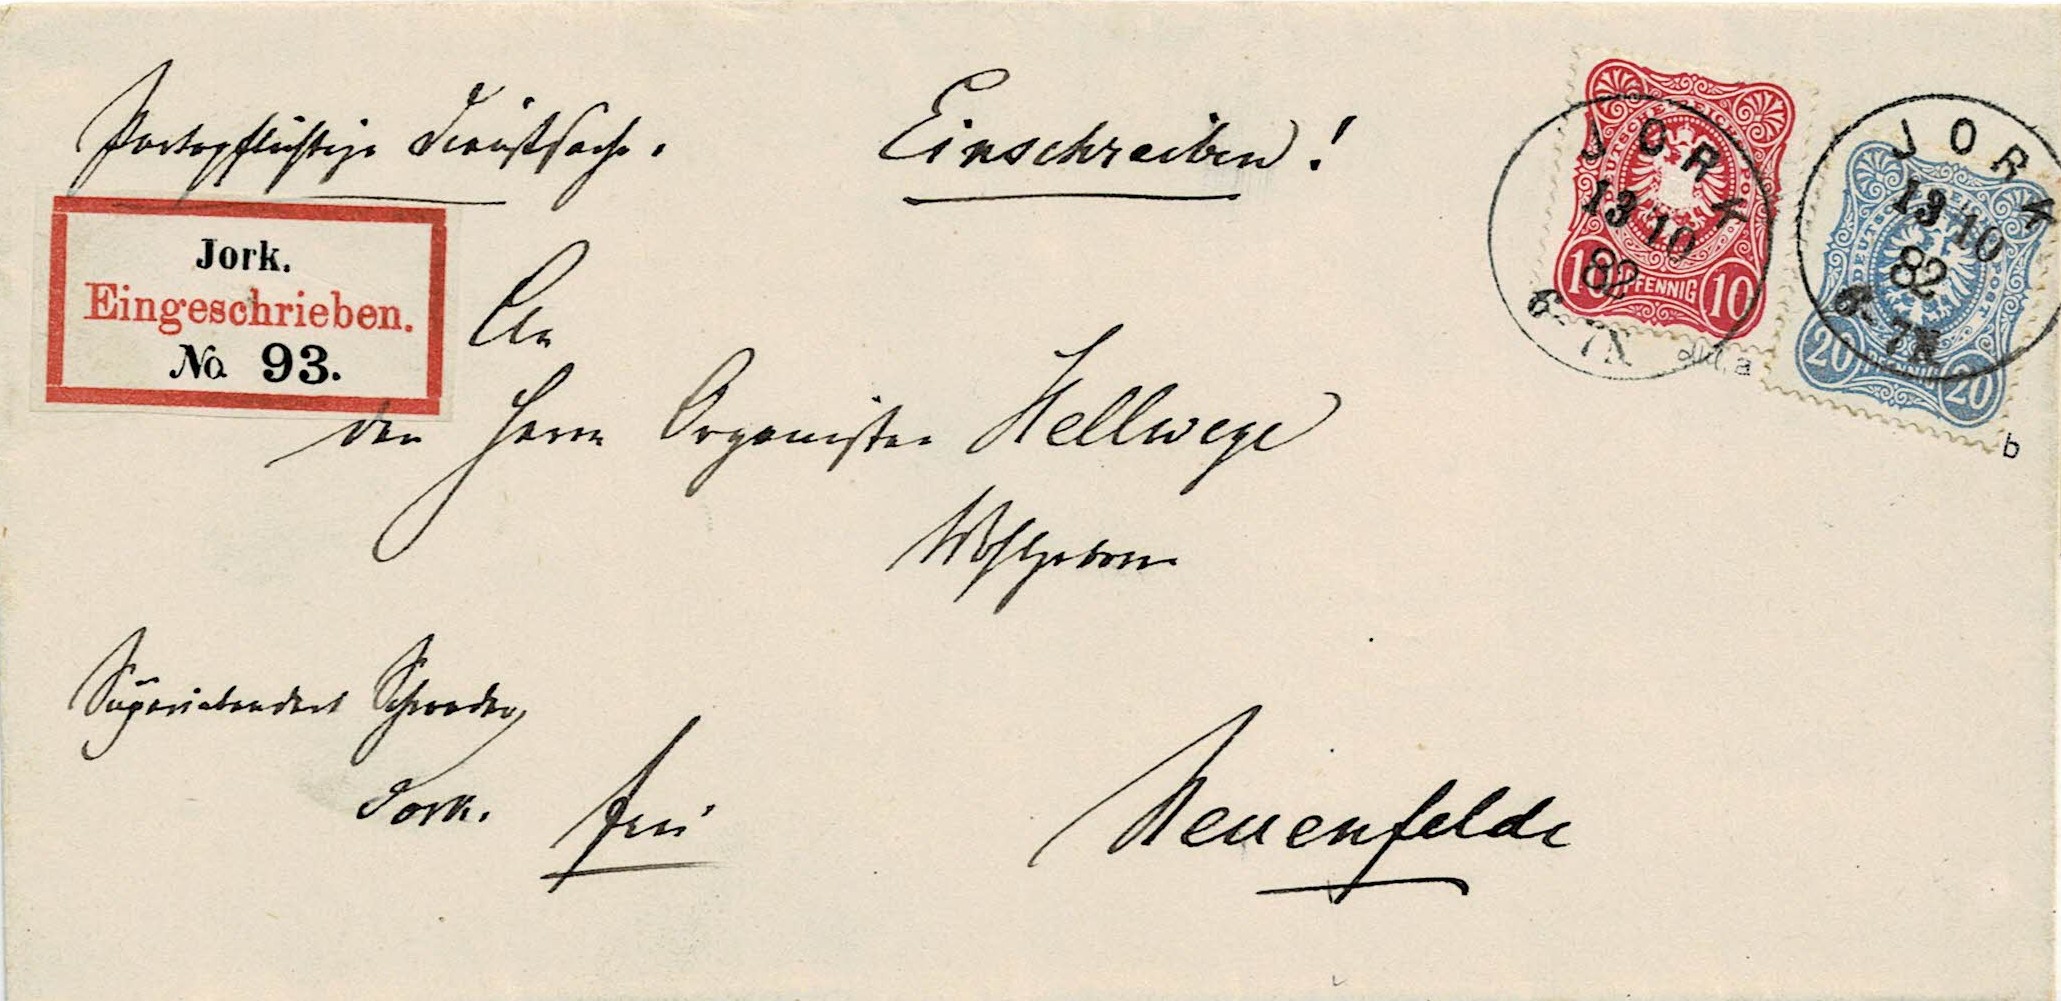 Portopflichtige Dienstsache. Einschreiben!
Jork.
Eingeschrieben.
No 93.
An
den Herrn Organisten Hellwege
Wohlgeboren
Superintendent Schroeder,
Jork. frei
Neuenfelde
JORK
13 10
82
6-7N
DEUTSCHE REICHS-POST
10 PFENNIG 10
a
JORK
13 10
82
6-7N
20 PFENNIG 20
b